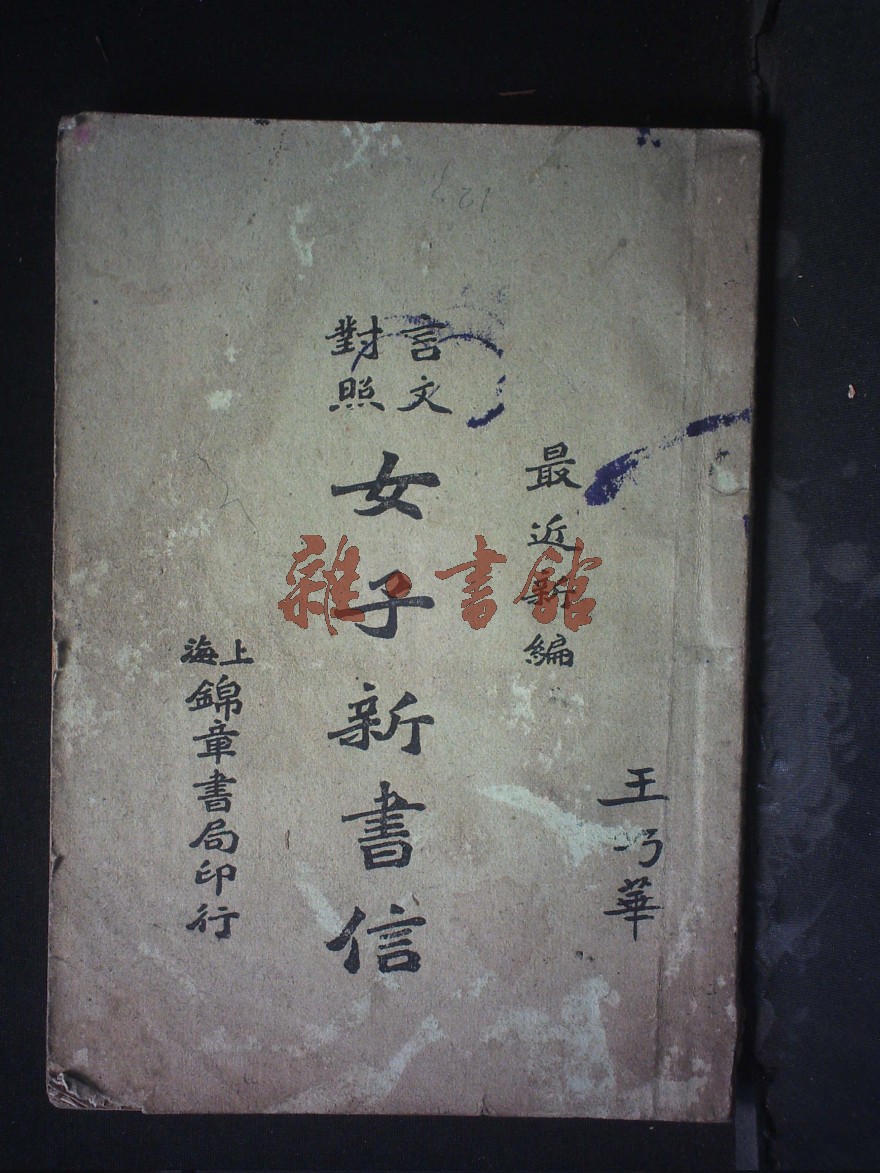 王巧華
最近新編
言文
對照
女子新書信
上海
錦章書局印行
雜書館